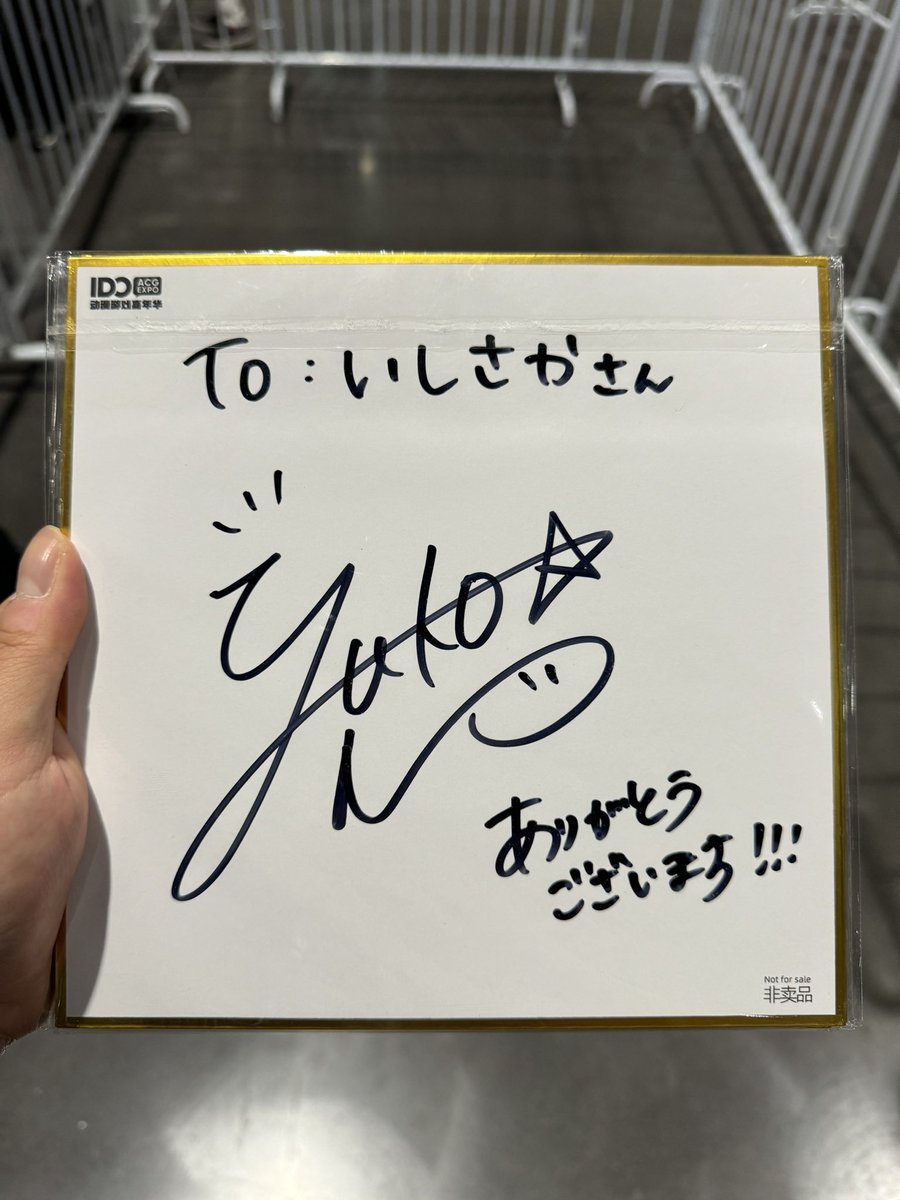 IDO ACG EXPO
动画游戏嘉年华
To:いしさかさん
Yuko☆
N
ありがとう
ございます!!!
Not for sale
非卖品